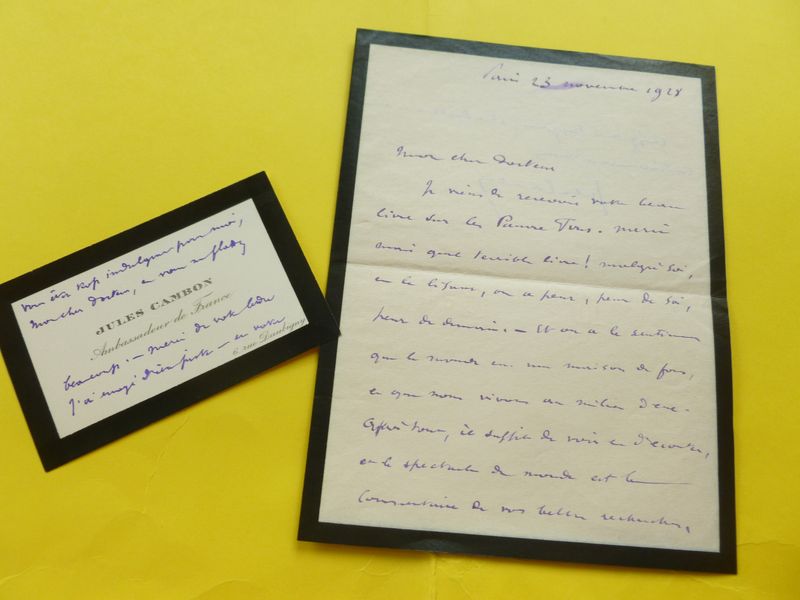 vous êtes trop indulgent pour moi,
mon cher docteur, et vous me flattez
JULES CAMBON
Ambassadeur de France
beaucoup. — merci de votre lettre
6, rue Daubigny
J'ai — en votre
Paris 23 novembre 1928
Mon cher Docteur
Je viens de recevoir votre beau
livre sur les Pauvres Fous. merci
mais quel terrible livre! malgré soi,
en le lisant, on a peur, peur de soi,
peur de demain. — Et on a le sentiment
que le monde est une maison de fous,
et que nous vivons au milieu d'eux.
Après tout, il suffit de voir et d'écouter,
et le spectacle du monde est le
commentaire de vos belles recherches.